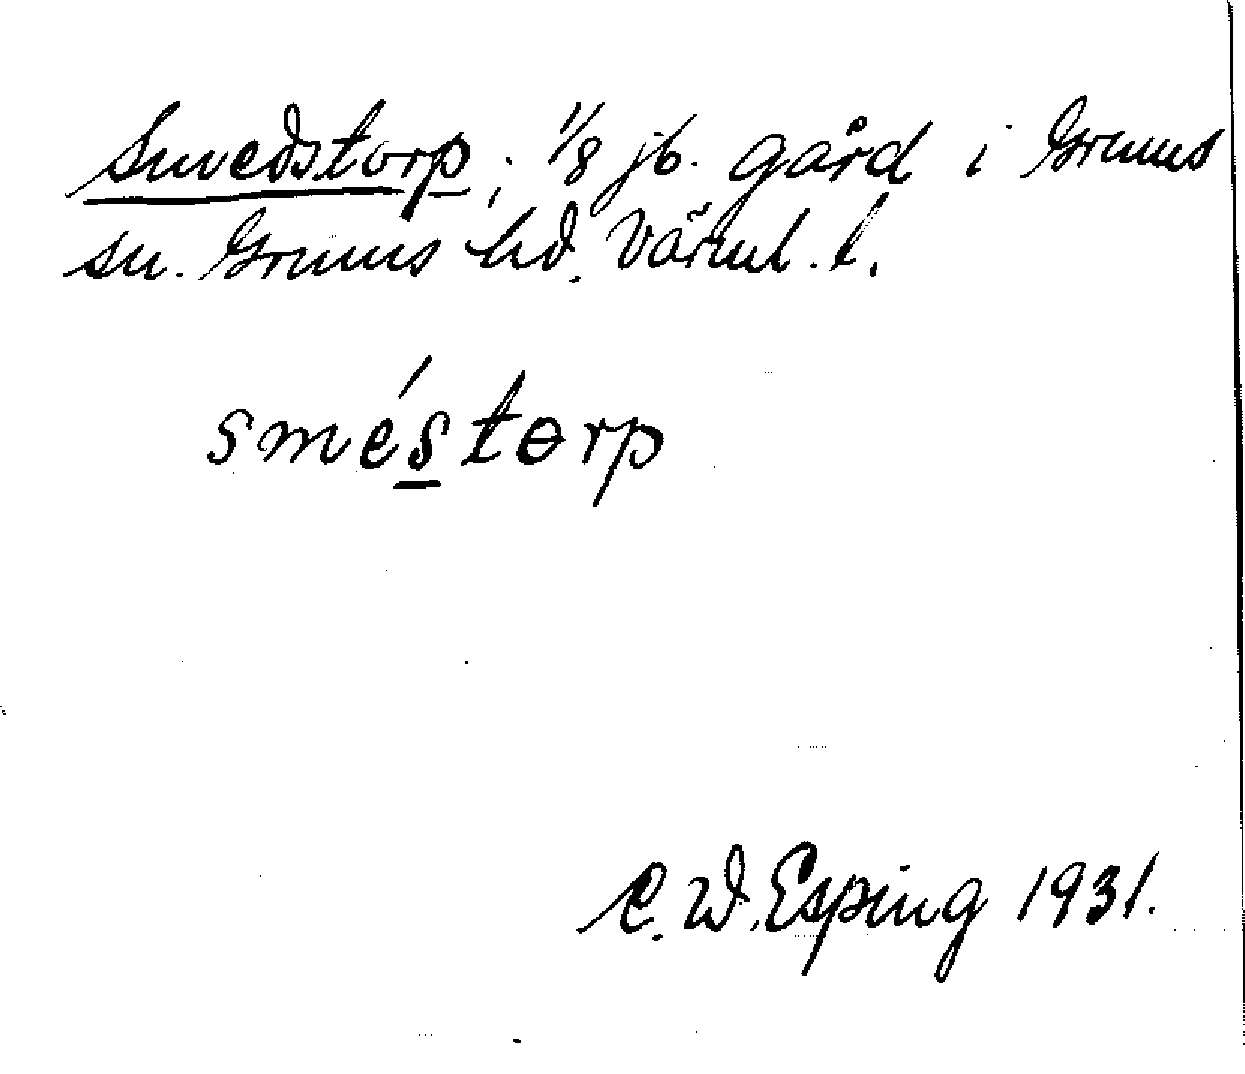 Smedstorp; 1/8 jb. gård i Grums
sn. Grums hd. Värml. l.
sméstɵrp
C. W. Esping 1931.